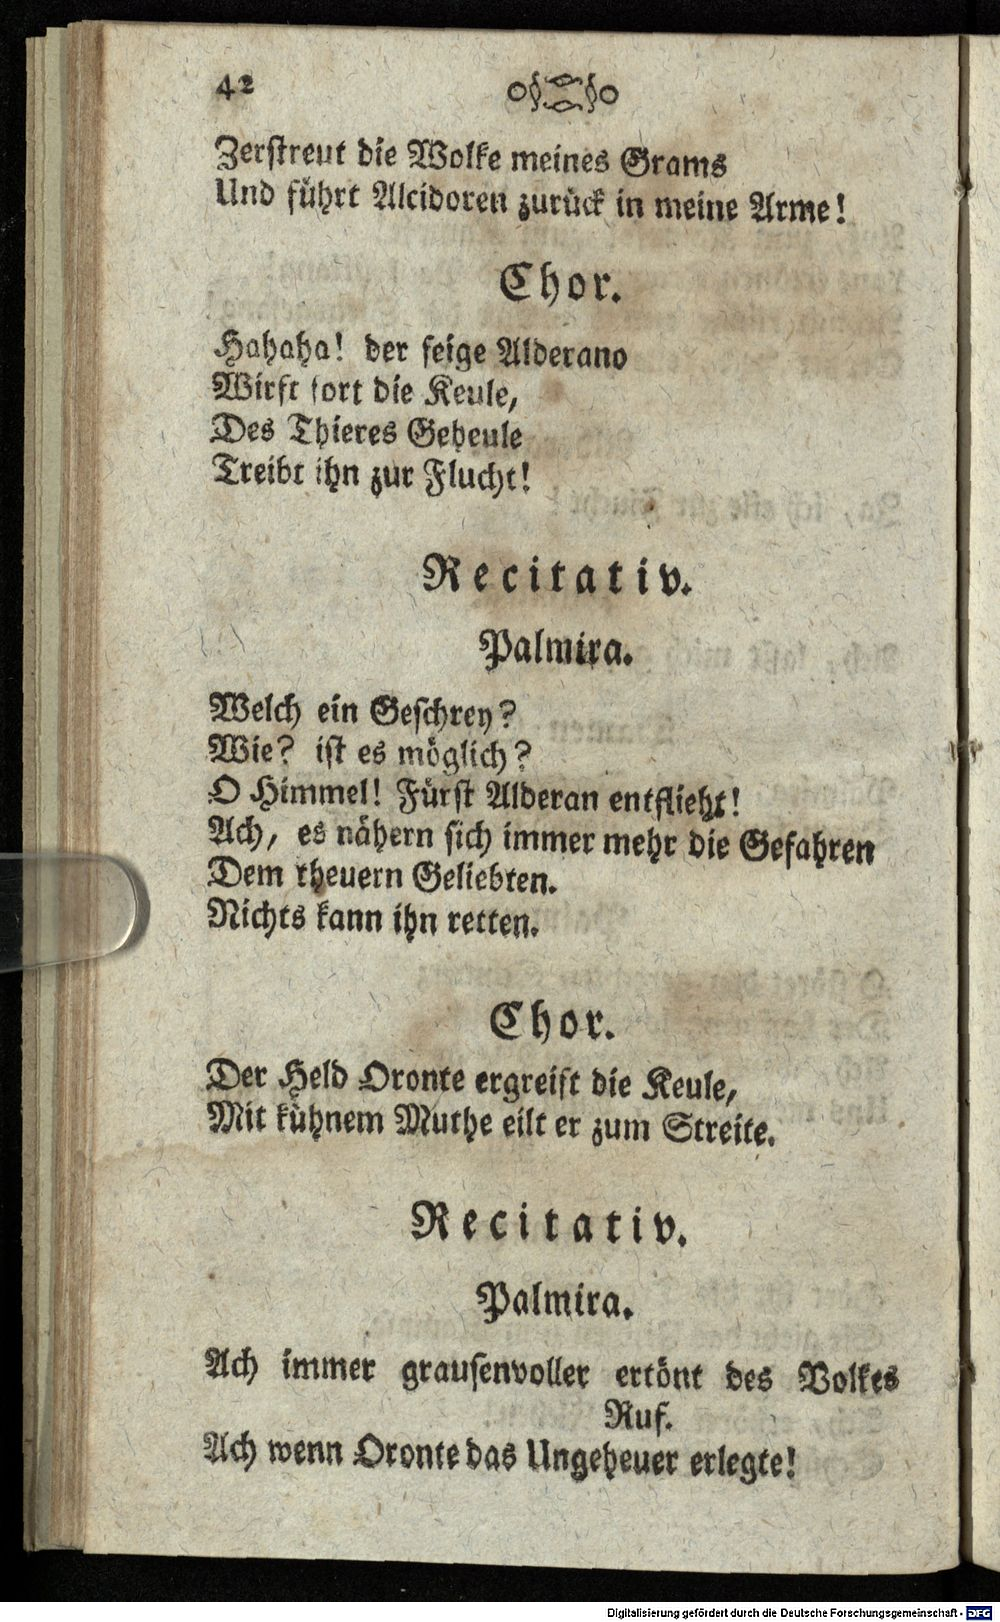 42
Zerstreut die Wolke meines Grams
Und führt Alcidoren zurück in meine Arme!
Chor.
Hahaha! der feige Alderano
Wirft fort die Keule,
Des Thieres Geheule
Treibt ihn zur Flucht!
Recitativ.
Palmira.
Welch ein Geschrey?
Wie? ist es möglich?
O Himmel! Fürst Alderan entflieht!
Ach, es nähern sich immer mehr die Gefahren
Dem theuern Geliebten.
Nichts kann ihn retten.
Chor.
Der Held Oronte ergreift die Keule,
Mit kühnem Muthe eilt er zum Streite.
Recitativ.
Palmira.
Ach immer grausenvoller ertönt des Volkes
Ruf.
Ach wenn Oronte das Ungeheuer erlegte!
Digitalisierung gefördert durch die Deutsche Forschungsgemeinschaft - DFG